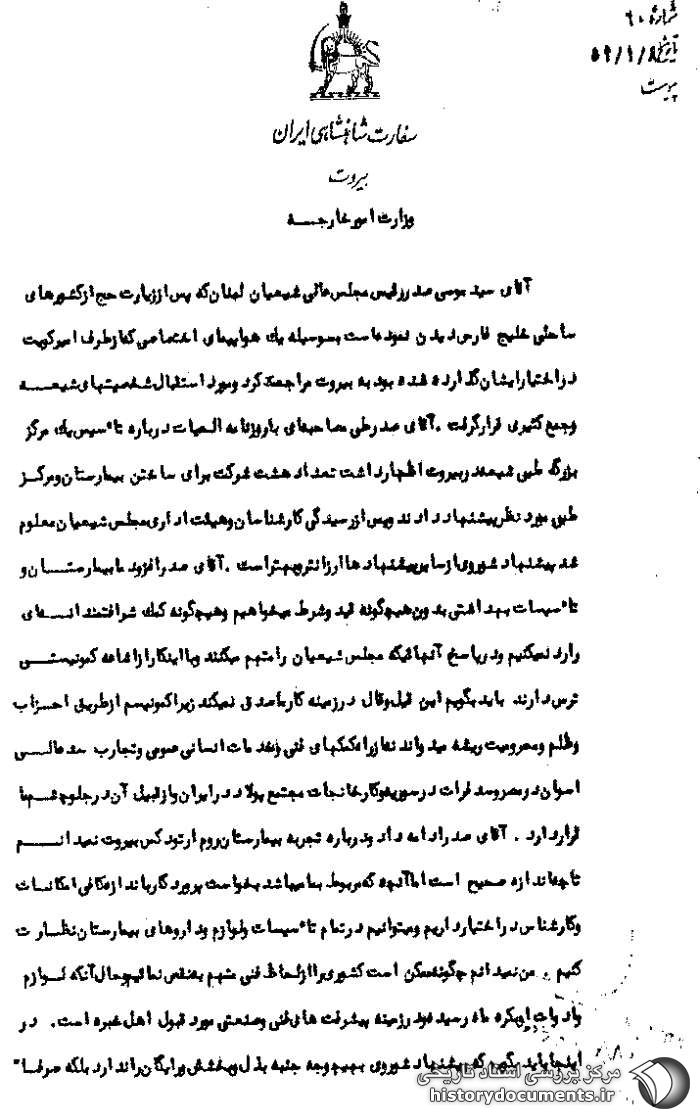 شماره ۶۰
تاریخ ۵۴/۱/۸
پیوست
سفارت شاهنشاهی ایران
بیروت
وزارت امور خارجه
آقای سید موسی صدر رئیس مجلس عالی شیعیان لبنان که پس از زیارت حج از کشورهای
ساحلی خلیج فارس دیدن نموده است بوسیله یک هواپیمای اختصاصی که از طرف امیر کویت
در اختیار ایشان گذارده شده بود به بیروت مراجعت کرد و مورد استقبال شخصیتهای شیعه
و جمع کثیری قرار گرفت . آقای صدر طی مصاحبه‌ای با روزنامه الحیات درباره تأسیس یک مرکز
بزرگ طبی شیعه در بیروت اظهار داشت تعداد هشت شرکت برای ساختن بیمارستان و مرکز
طبی مورد نظر پیشنهاد دادند و پس از رسیدگی کارشناسان و هیئت اداری مجلس شیعیان معلوم
شد پیشنهاد شوروی از سایر پیشنهادها ارزانتر و بهتر است . آقای صدر افزود ما بیمارستان و
تأسیسات بهداشتی بدون هیچگونه قید و شرط میخواهیم و هیچگونه کمک شرافتمندانه‌ای
وارد نمیکنیم و در پاسخ آنهائیکه مجلس شیعیان را متهم میکنند و با اینکار از اشاعه کمونیستی
ترس دارند باید بگویم این قیل و قال در زمینه کار ما صدق نمیکند زیرا کمونیسم از طریق احزاب
و ظلم و محرومیت ریشه میدواند نه از راه کمکهای فنی و خدمات انسانی عمومی و تجارب سد عالی
اسوان در مصر و سد فرات در سوریه و کارخانجات مجتمع پولاد در ایران و از قبیل آن در جلو چشم ما
قرار دارد . آقای صدر ادامه داد و درباره تجربه بیمارستان روم ارتودکس بیروت نمیدانم
تا چه اندازه صحیح است اما آنچه که مربوط بما میباشد بخواست پروردگار باندازه کافی امکانات
و کارشناس در اختیار داریم و میتوانیم در تمام تأسیسات و لوازم و داروهای بیمارستان نظارت
کنیم . من نمیدانم چگونه ممکن است کشوری را از لحاظ فنی متهم به نقص نمائیم و حال آنکه لوازم
و ادوات او بکره ماه رسیده و در زمینه پیشرفت های فنی و صنعتی مورد قبول اهل خبره است . در
اینجا باید بگویم که پیشنهاد شوروی بهیچوجه جنبه بذل و بخشش و رایگان را ندارد بلکه صرفاً
مرکز بررسی اسناد تاریخی
historydocuments.ir